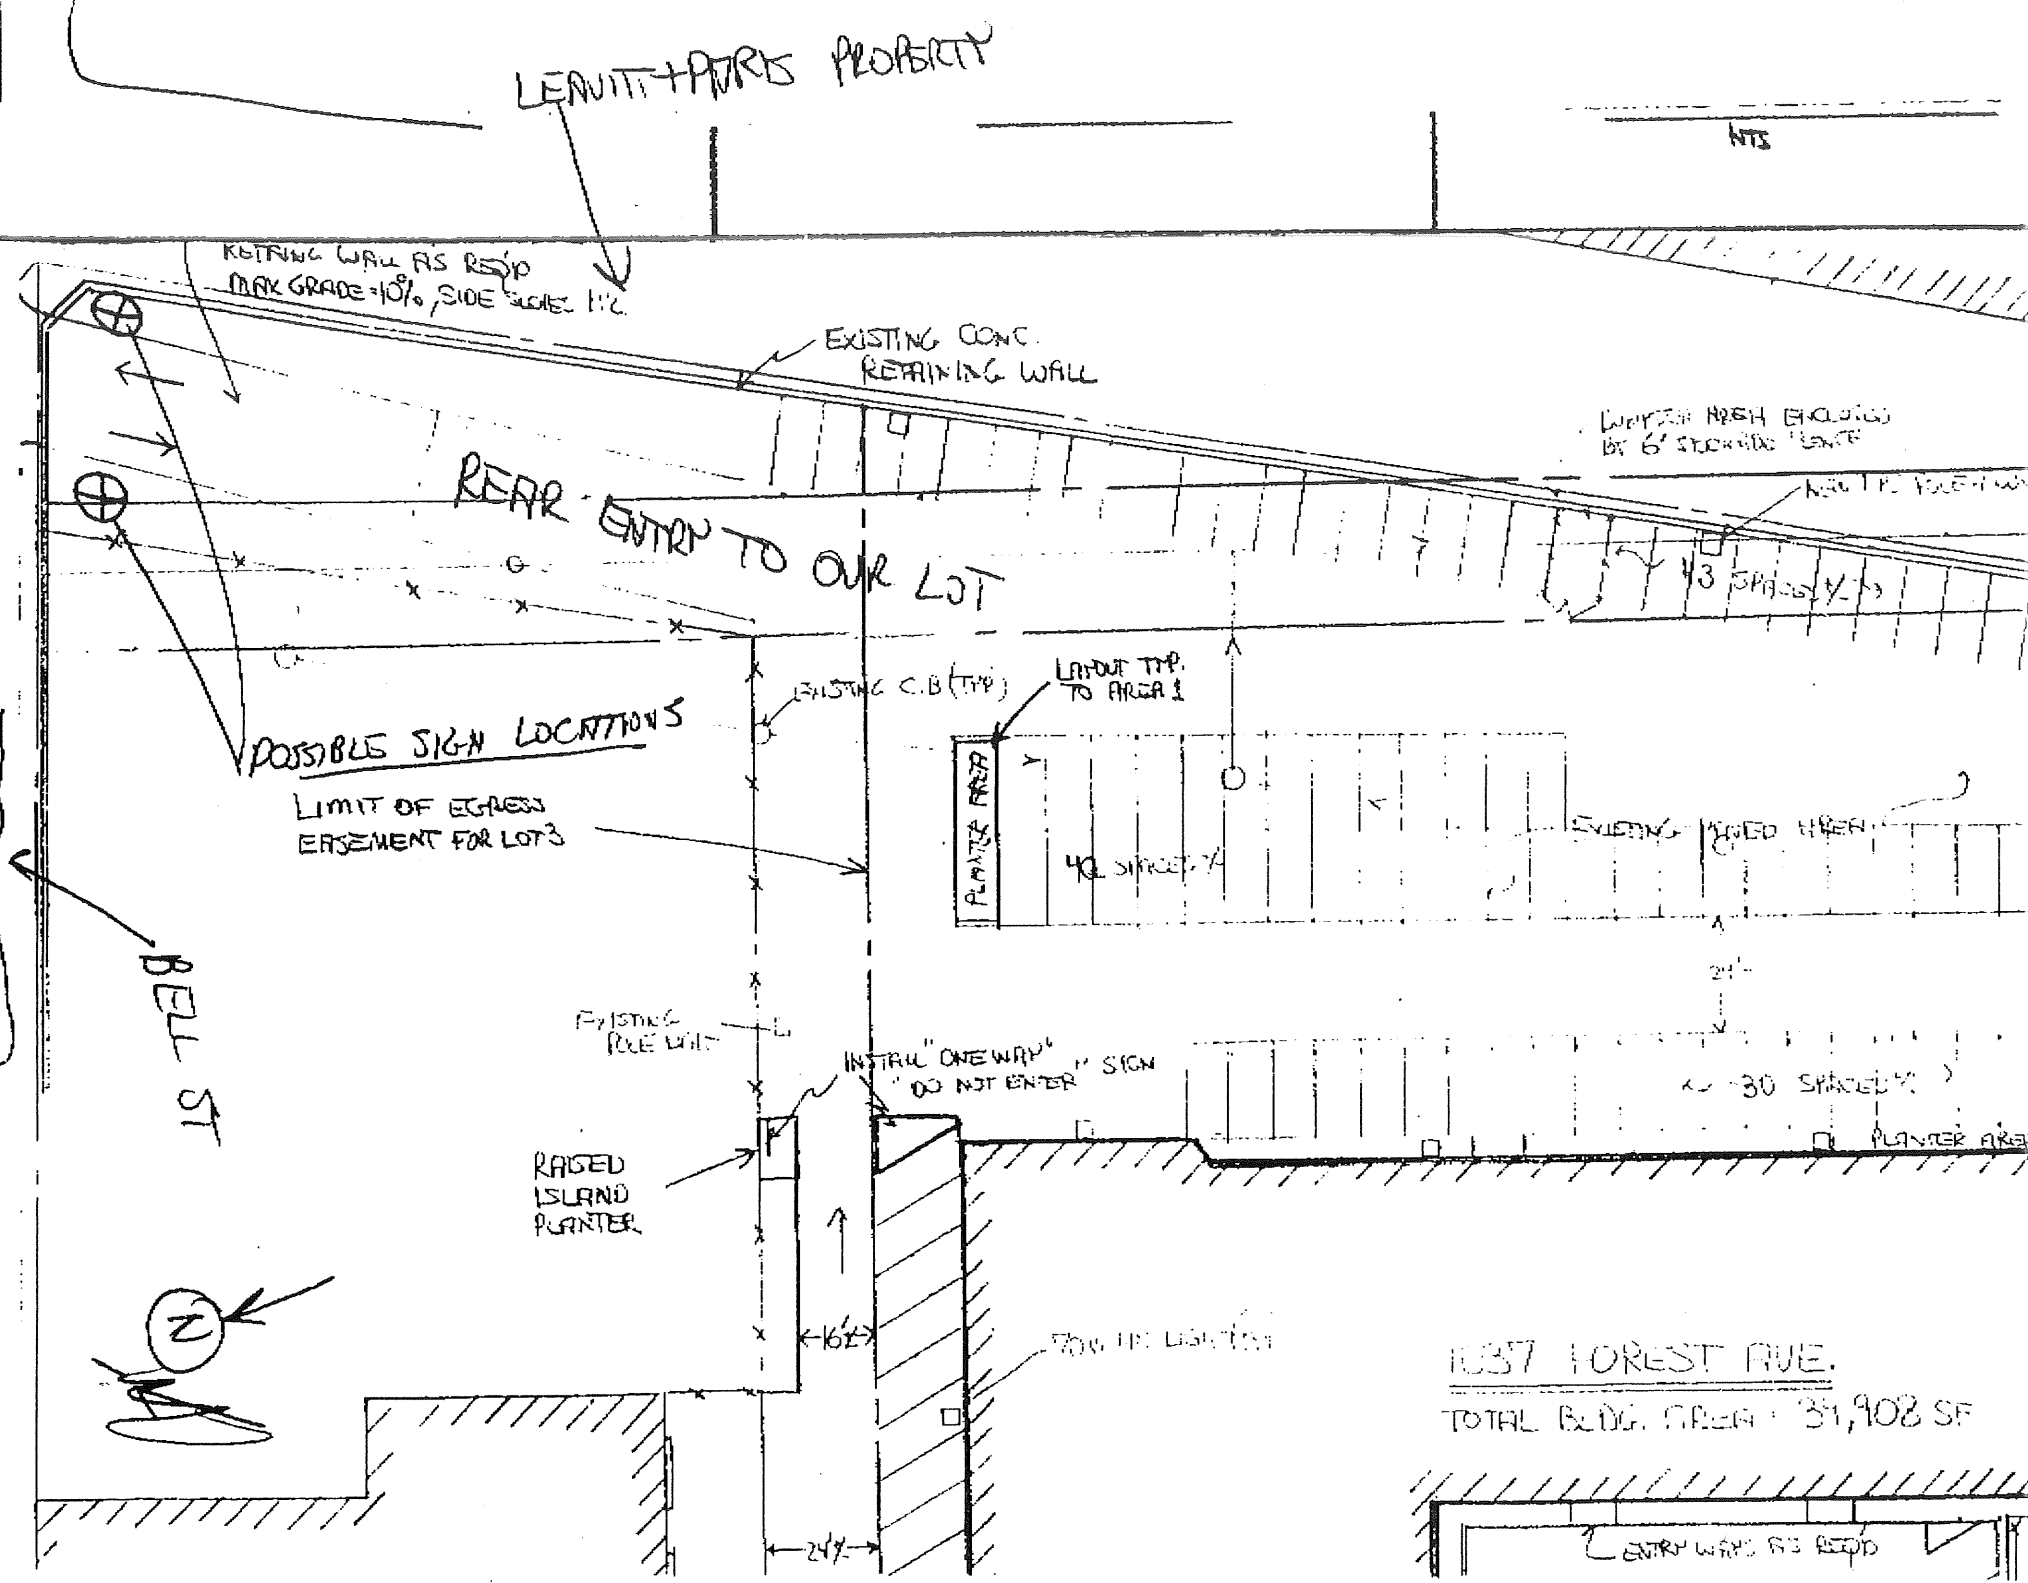 LEAVITT + PARIS PROPERTY
NTS
RETAINING WALL AS REQ'D
MAX GRADE=10%, SIDE SLOPE 1:2
EXISTING CONC.
RETAINING WALL
AREA ENCLOSED
BY 6' STOCKADE FENCE
REAR ENTRY TO OUR LOT
13 SPACES
EXISTING C.B (TYP)
LAYOUT TYP.
TO AREA 1
POSSIBLE SIGN LOCATIONS
LIMIT OF EGRESS
EASEMENT FOR LOT 3
PLANTER AREA
40 SPACES
EXISTING PAVED AREA
24'±
BELL ST
EXISTING
POLE
INSTALL "ONE WAY"
"DO NOT ENTER" SIGN
30 SPACES
PLANTER AREA
RAISED
ISLAND
PLANTER
N
16'±
70W LIGHT
1037 FOREST AVE.
TOTAL BLDG. AREA: 39,908 SF
24'±
ENTRY WAYS AS REQ'D